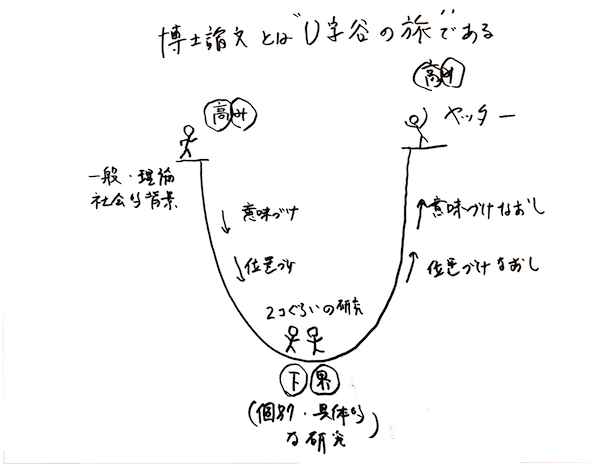 博士論文とは"U字谷の旅"である
高み
高み
ヤッター
一般・理論
社会的背景
↓意味づけ
↓位置づけ
↑意味づけなおし
↑位置づけなおし
2コぐらいの研究
下界
(個別・具体的
な研究)